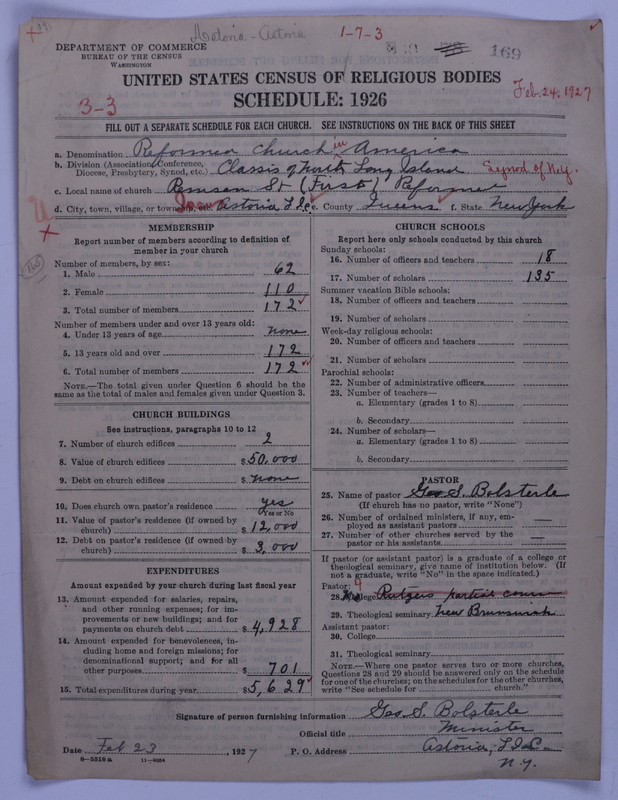 Astoria - Astoria 1-7-3
DEPARTMENT OF COMMERCE
BUREAU OF THE CENSUS
WASHINGTON
169
UNITED STATES CENSUS OF RELIGIOUS BODIES
Feb. 24, 1927
3-3
SCHEDULE: 1926
FILL OUT A SEPARATE SCHEDULE FOR EACH CHURCH. SEE INSTRUCTIONS ON THE BACK OF THIS SHEET
a. Denomination Reformed Church in America
b. Division (Association, Conference, Diocese, Presbytery, Synod, etc.) Classis of North Long Island Synod of N.Y.
c. Local name of church Remsen St (First) Reformed
d. City, town, village, or township, etc. Astoria L I C e. County Queens f. State New York
MEMBERSHIP
Report number of members according to definition of
member in your church
Number of members, by sex:
1. Male 62
2. Female 110
3. Total number of members 172
Number of members under and over 13 years old:
4. Under 13 years of age none
5. 13 years old and over 172
6. Total number of members 172
NOTE.—The total given under Question 6 should be the
same as the total of males and females given under Question 3.
CHURCH BUILDINGS
See instructions, paragraphs 10 to 12
7. Number of church edifices 2
8. Value of church edifices $50,000
9. Debt on church edifices $ none
10. Does church own pastor's residence yes
Yes or No
11. Value of pastor's residence (if owned by
church) $12,000
12. Debt on pastor's residence (if owned by
church) $3,000
EXPENDITURES
Amount expended by your church during last fiscal year
13. Amount expended for salaries, repairs,
and other running expenses; for im-
provements or new buildings; and for
payments on church debt $4,928
14. Amount expended for benevolences, in-
cluding home and foreign missions; for
denominational support; and for all
other purposes $701
15. Total expenditures during year $5,629
CHURCH SCHOOLS
Report here only schools conducted by this church
Sunday schools:
16. Number of officers and teachers 18
17. Number of scholars 135
Summer vacation Bible schools:
18. Number of officers and teachers
19. Number of scholars
Week-day religious schools:
20. Number of officers and teachers
21. Number of scholars
Parochial schools:
22. Number of administrative officers
23. Number of teachers—
a. Elementary (grades 1 to 8)
b. Secondary
24. Number of scholars—
a. Elementary (grades 1 to 8)
b. Secondary
PASTOR
25. Name of pastor Geo S. Bolsterle
(If church has no pastor, write "None")
26. Number of ordained ministers, if any, em-
ployed as assistant pastors —
27. Number of other churches served by the
pastor or his assistants —
If pastor (or assistant pastor) is a graduate of a college or
theological seminary, give name of institution below. (If
not a graduate, write "No" in the space indicated.)
Pastor:
28. College Rutgers partial course
29. Theological seminary New Brunswick
Assistant pastor:
30. College
31. Theological seminary
NOTE.—Where one pastor serves two or more churches,
Questions 28 and 29 should be answered only on the schedule
for one of the churches; on the schedules for the other churches,
write "See schedule for church."
Signature of person furnishing information Geo S. Bolsterle
Official title Minister
Date Feb 23, 1927 P. O. Address Astoria, L I C
N.Y.
8-5518a 11-9054